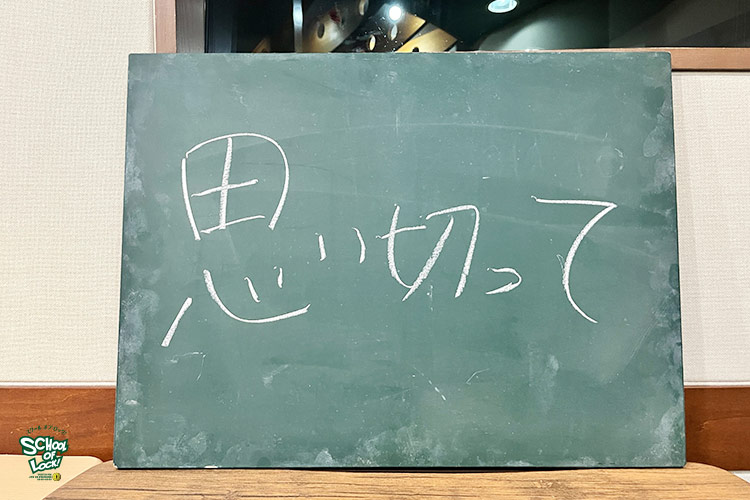 思い切って
SCHOOL
OF
LOCK!